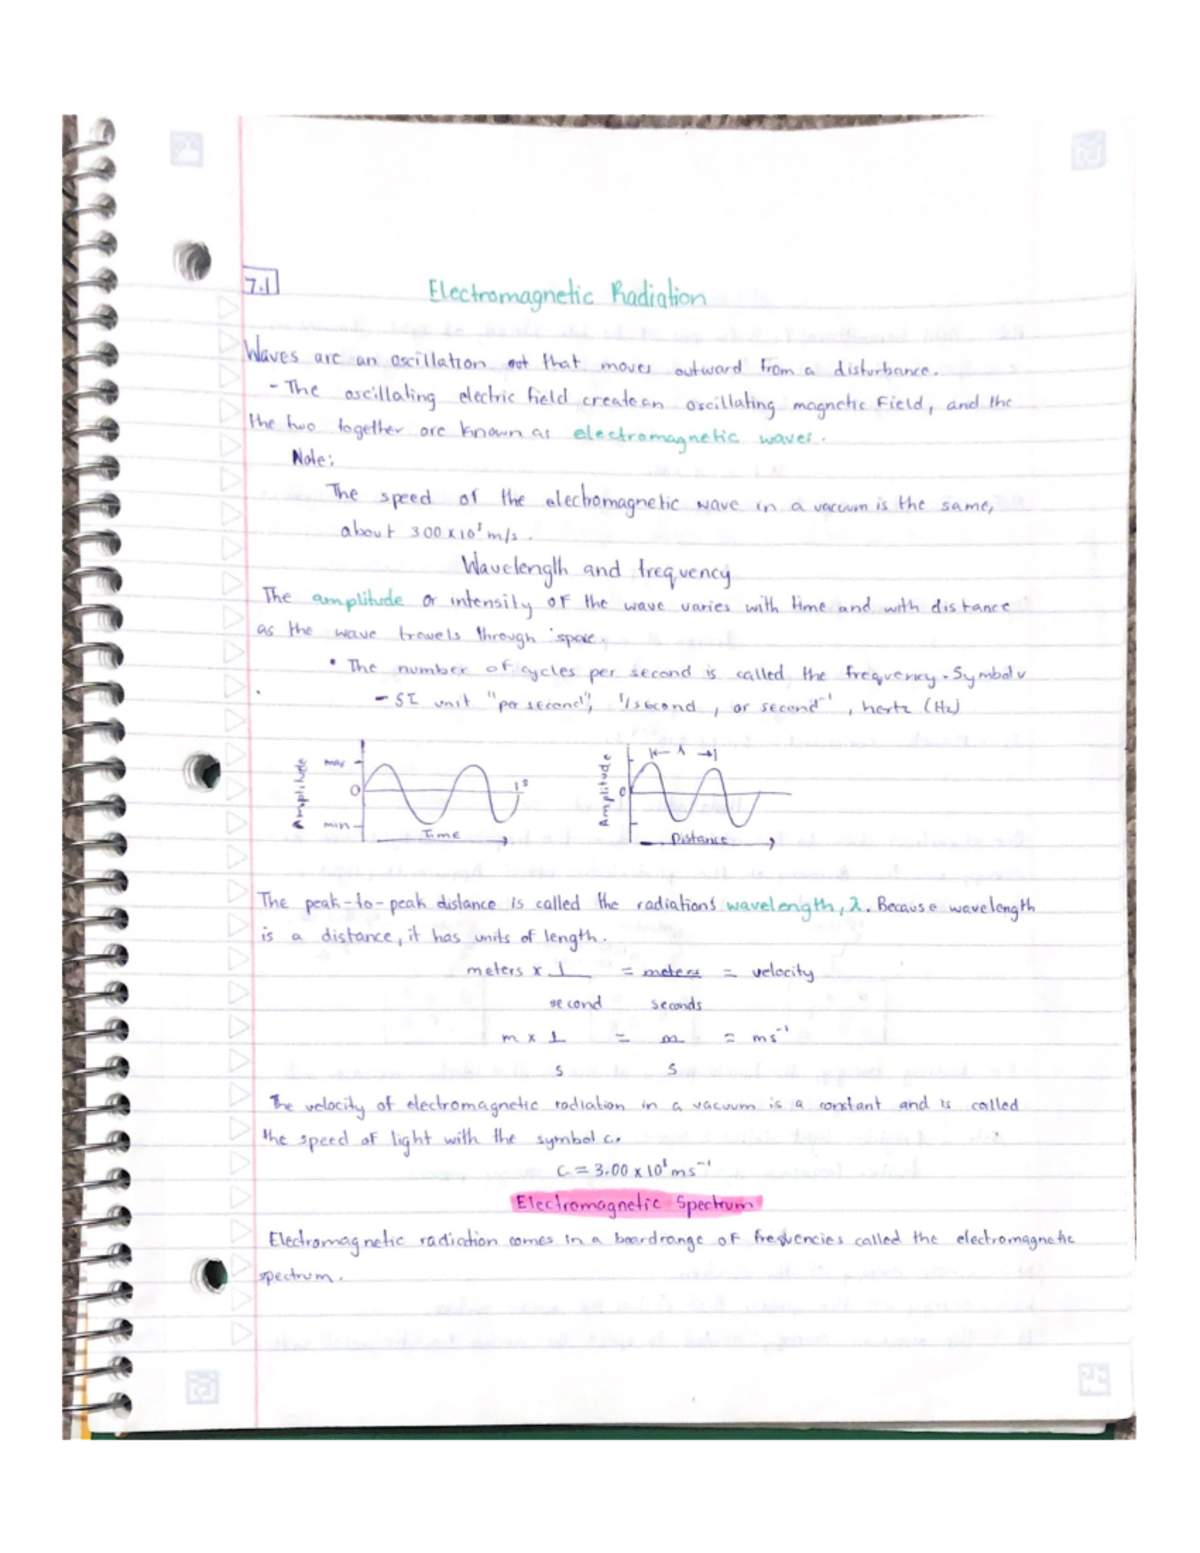 7.1
Electromagnetic Radiation
Waves are an oscillation out that moves outward from a disturbance.
- The oscillating electric field create an oscillating magnetic field, and the
the two together are known as electromagnetic waves.
Note:
The speed of the electromagnetic wave in a vacuum is the same,
about 3.00 x 10⁸ m/s.
Wavelength and frequency
The amplitude or intensity of the wave varies with time and with distance
as the wave travels through space.
• The number of cycles per second is called the frequency. Symbol ν
- SI unit "per second", 1/second, or second⁻¹, hertz (Hz)
Amplitude
max
0
min
1 s
Time
Amplitude
0
λ
Distance
The peak-to-peak distance is called the radiation's wavelength, λ. Because wavelength
is a distance, it has units of length.
meters x 1 = meters = velocity
second seconds
m x 1 = m = ms⁻¹
s s
The velocity of electromagnetic radiation in a vacuum is a constant and is called
the speed of light with the symbol c.
c = 3.00 x 10⁸ ms⁻¹
Electromagnetic Spectrum
Electromagnetic radiation comes in a boardrange of frequencies called the electromagnetic
spectrum.